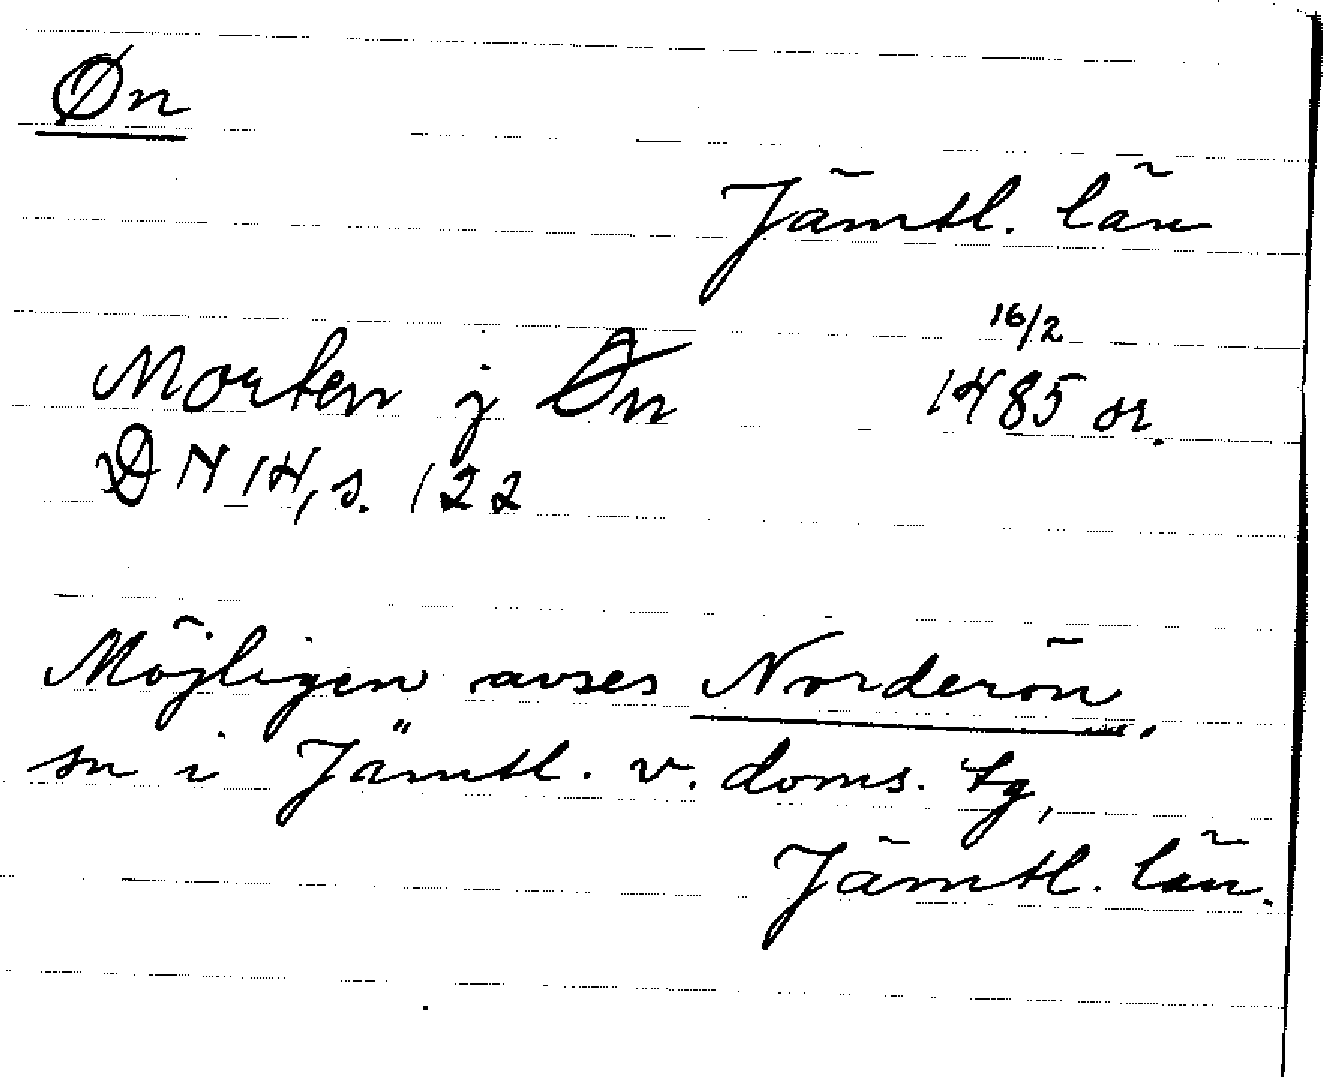 Øn
Jämtl. län
Morten j Øn 16/2 1485 or.
DN 14, s. 122
Möjligen avses Norderön,
sn i Jämtl. v. doms. tg,
Jämtl. län.